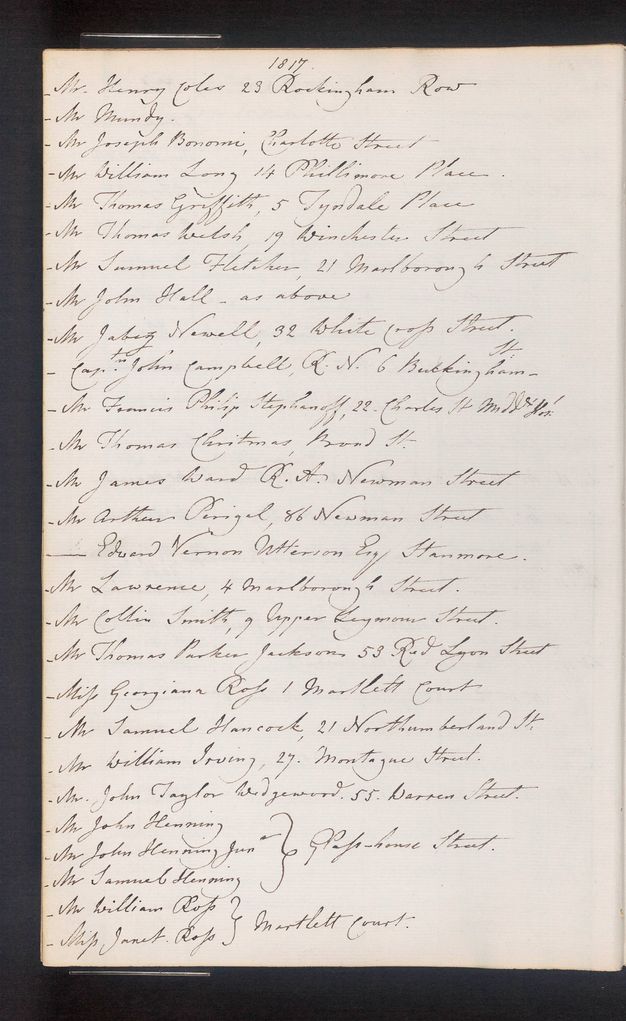 1817.
- Mr. Henry Coles 23 Rockingham Row
- Mr Mundy.
- Mr Joseph Bonomi, Charlotte Street
- Mr William Long 14 Phillimore Place.
- Mr Thomas Griffith, 5 Tyndale Place
- Mr Thomas Welsh, 19 Winchester Street
- Mr Samuel Fletcher, 21 Marlborough Street
- Mr John Hall - as above
- Mr Jabez Newell, 32 White Cross Street.
- Captn. John Campbell, R. N. 6 Buckingham - St.
- Mr Francis Philip Stephanoff, 22. Charles St Middx Hos!
- Mr Thomas Christmas, Broad St.
- Mr James Ward R. A. Newman Street
- Mr Arthur Perigal, 86 Newman Street
— Edward Vernon Utterson Esq Stanmore.
- Mr Lawrence, 4 Marlborough Street.
- Mr Collin Smith, 9 Upper Seymour Street.
- Mr Thomas Parker Jackson 53 Red Lyon Street
- Miss Georgiana Ross 1 Martlett Court
- Mr Samuel Hancock, 21 Northumberland St.
- Mr William Irving, 27. Montague Street.
- Mr. John Taylor Wedgeword. 55. Warren Street.
- Mr John Henning
- Mr John Henning Junr } Glass-house Street.
- Mr Samuel Henning
- Mr William Ross
- Miss Janet Ross } Martlett Court.